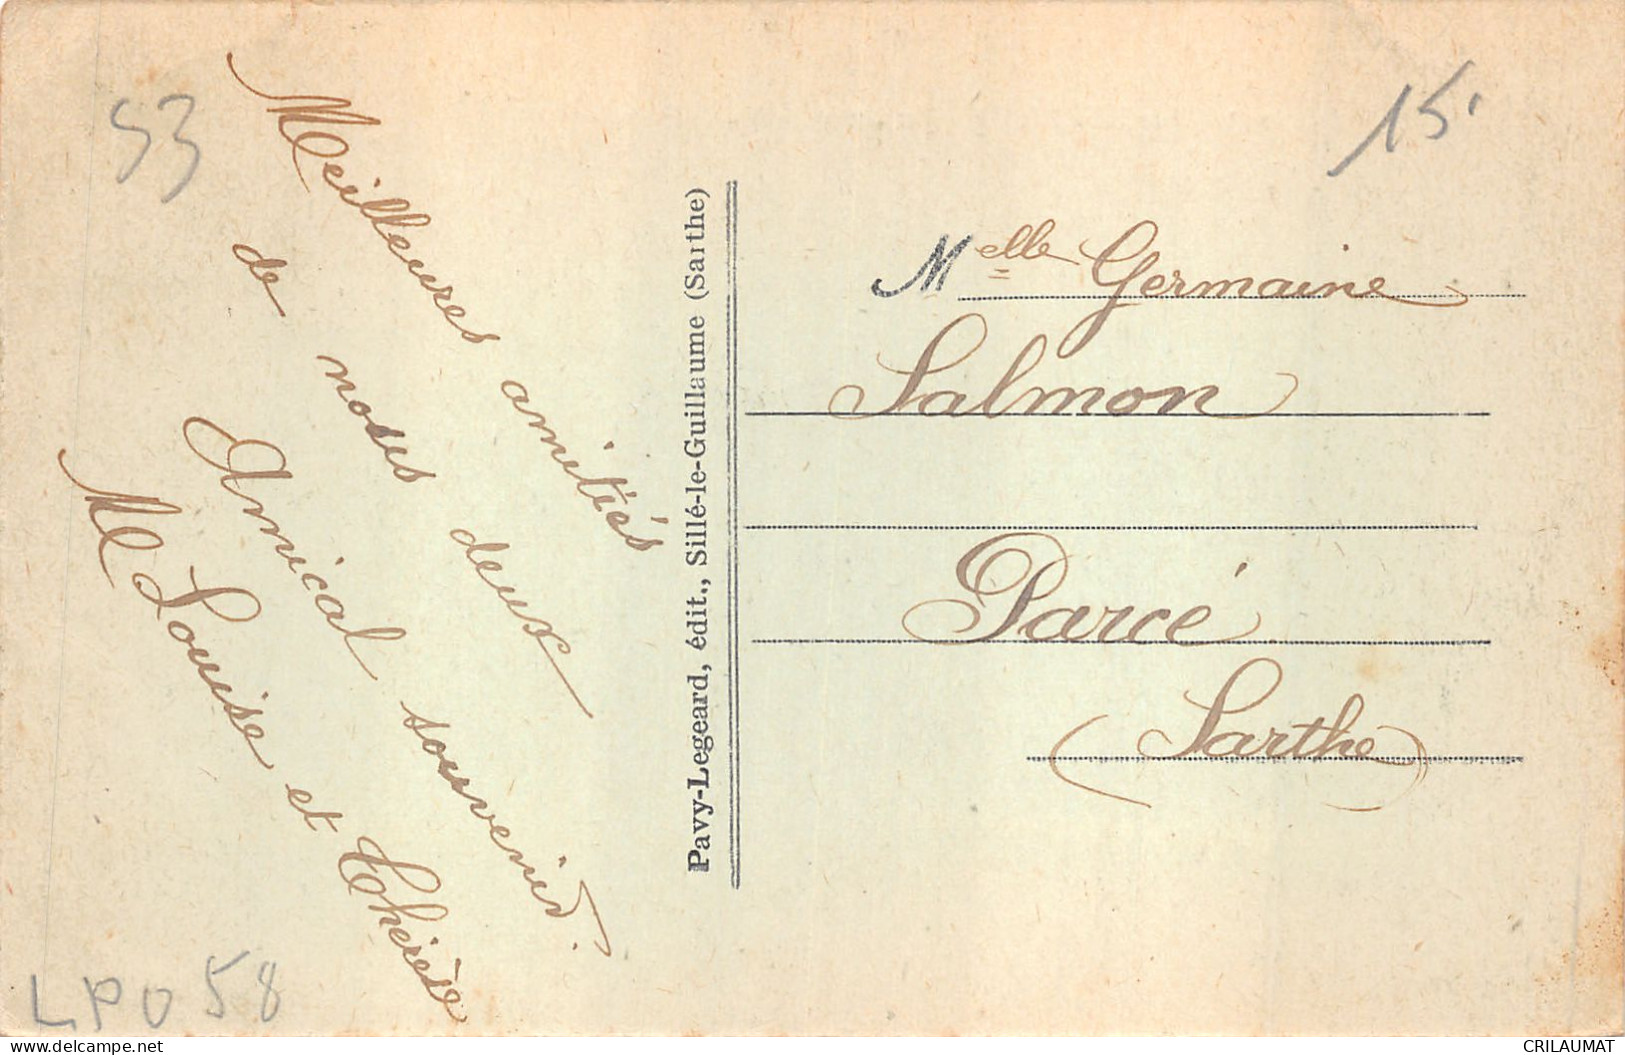 53
15
Meilleures amitiés
de nous deux
Amical souvenir.
M Louise et Thérèse
LPO 58
Pavy-Legeard, édit., Sillé-le-Guillaume (Sarthe)
Melle Germaine
Salmon
Parcé
(Sarthe)
www.delcampe.net
CRILAUMAT